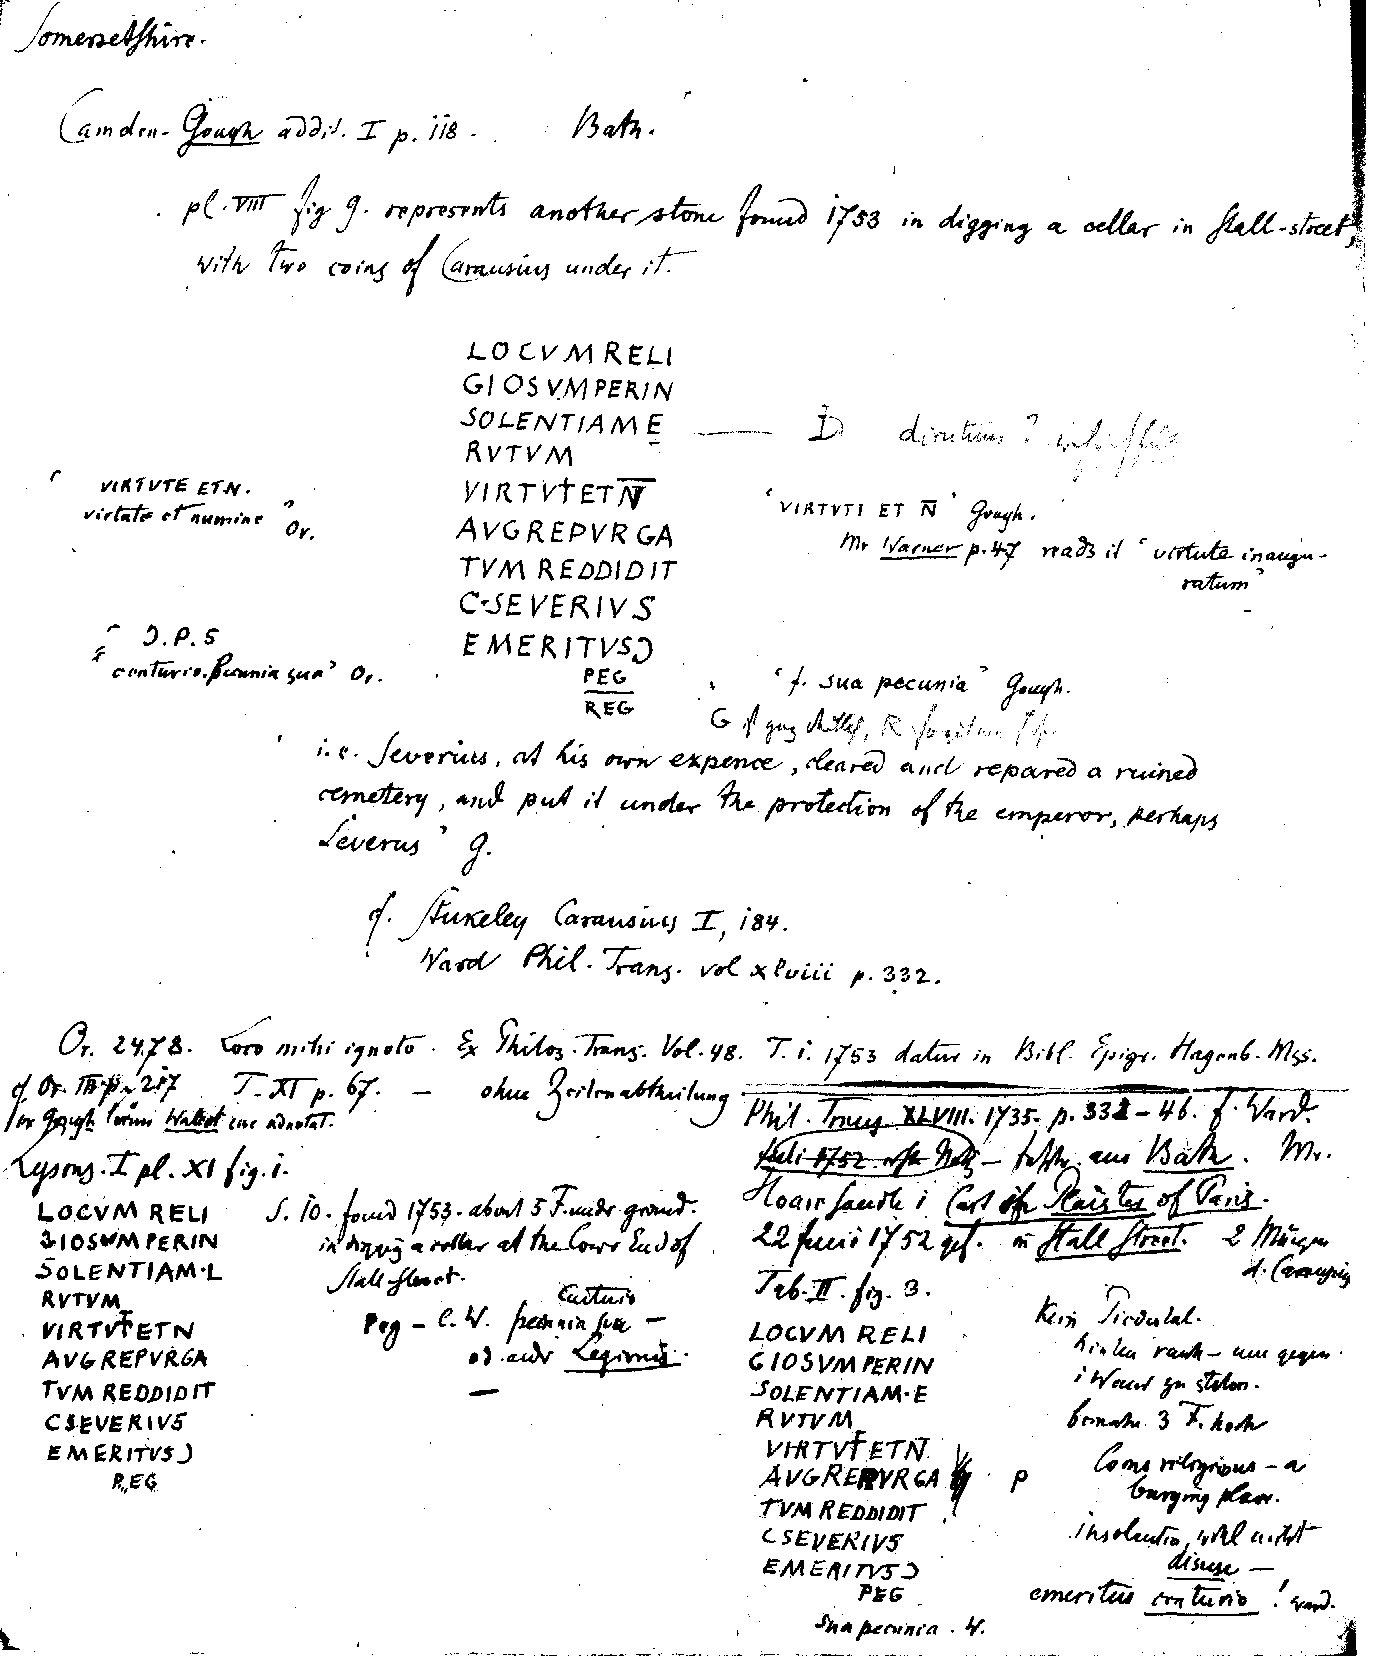 Somersetshire.
Camden-Gough addit. I p. 118. Bath.
pl. VIII fig 9. represents another stone found 1753 in digging a cellar in Stall-street,
with two coins of Carausius under it.
LOCVM RELI
GIOSVMPERIN
SOLENTIAM E — D dirutum?
RVTVM
"VIRTVTE ET N. VIRTVTETN̅ 'VIRTVTI ET N̅' Gough.
virtute et numine" Or. AVGREPVRGA Mr Warner p. 47 reads it "virtute inaugu-
ratum"
TVM REDDIDIT
C·SEVERIVS
"Ɔ.P.S EMERITVSƆ
centurio pecunia sua" Or. PEG "f. sua pecunia" Gough.
REG G
i.e. Severius, at his own expence, cleared and repared a ruined
cemetery, and put it under the protection of the emperor, perhaps
Severus" G.
cf. Stukeley Carausius I, 184.
Ward Phil. Trans. vol xlviii p. 332.
Or. 2478. Loco mihi ignoto. Ex Philos. Trans. Vol. 48. T. 1. 1753 datur in Bibl. Epigr. Hagenb. Mss.
cf Or. III p. 217 T. XI p. 67. — ohne Zeilenabtheilung
Lysons. I pl. XI fig. 1.
LOCVM RELI
GIOSVM PERIN
SOLENTIAM·L
RVTVM
VIRTVTETN
AVGREPVRGA
TVM REDDIDIT
CSEVERIVS
EMERITVSƆ
REG
S. 10. found 1753. about 5 F. under ground.
in digging a cellar at the lower End of
Stall-street.
Centurio
Peg – C. W. pecunia sua –
od. Legionis.
—
Phil. Trans. XLVIII. 1735. p. 332–46. f. Ward.
Juli 1752 – aus Bath. Mr.
Hoare sandte 1 Cast of Plaister of Paris.
22 Juni 1752 gef. in Stall Street. 2 Münzen
d. Carausius
Tab. II. fig. 3.
LOCVM RELI
GIOSVM PERIN
SOLENTIAM·E
RVTVM
VIRTVTETN
AVGREPVRGA P
TVM REDDIDIT
CSEVERIVS
EMERITVSƆ
PEG
sua pecunia. W.
Kein Piedestal.
hinten rauh – um gegen
1 Wand zu stehen.
beinahe 3 F. hoch
locus religiosus – a
burying place.
insolentia, wohl nicht
disuse —
emeritus centurio! Ward.